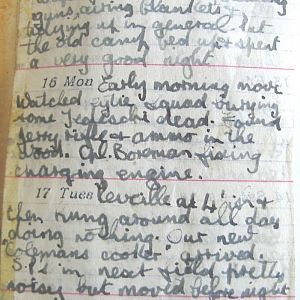 guns, airing blankets &
tidying up in general. Put
the old camp bed up & spent
a very good night
16 Mon Early morning move
Watched Eytie squad burying
some Tedeschi dead. Found
Jerry rifle & ammo in the
wood. Cpl. Boreman fixing
charging engine.
17 Tues Reveille at
then hung around all day
doing nothing. Our new
Colemans cooker arrived.
S.P.s in next field pretty
noisy but moved before night